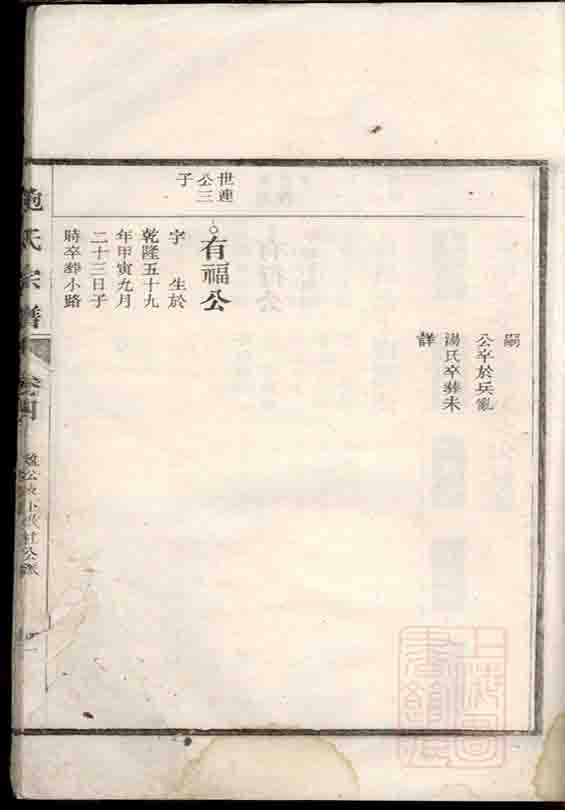 嗣
公卒於兵亂
湯氏卒葬未
詳
世連
公三
子
有福公
字 生於
乾隆五十九
年甲寅九月
二十三日子
時卒葬小路
氏宗譜